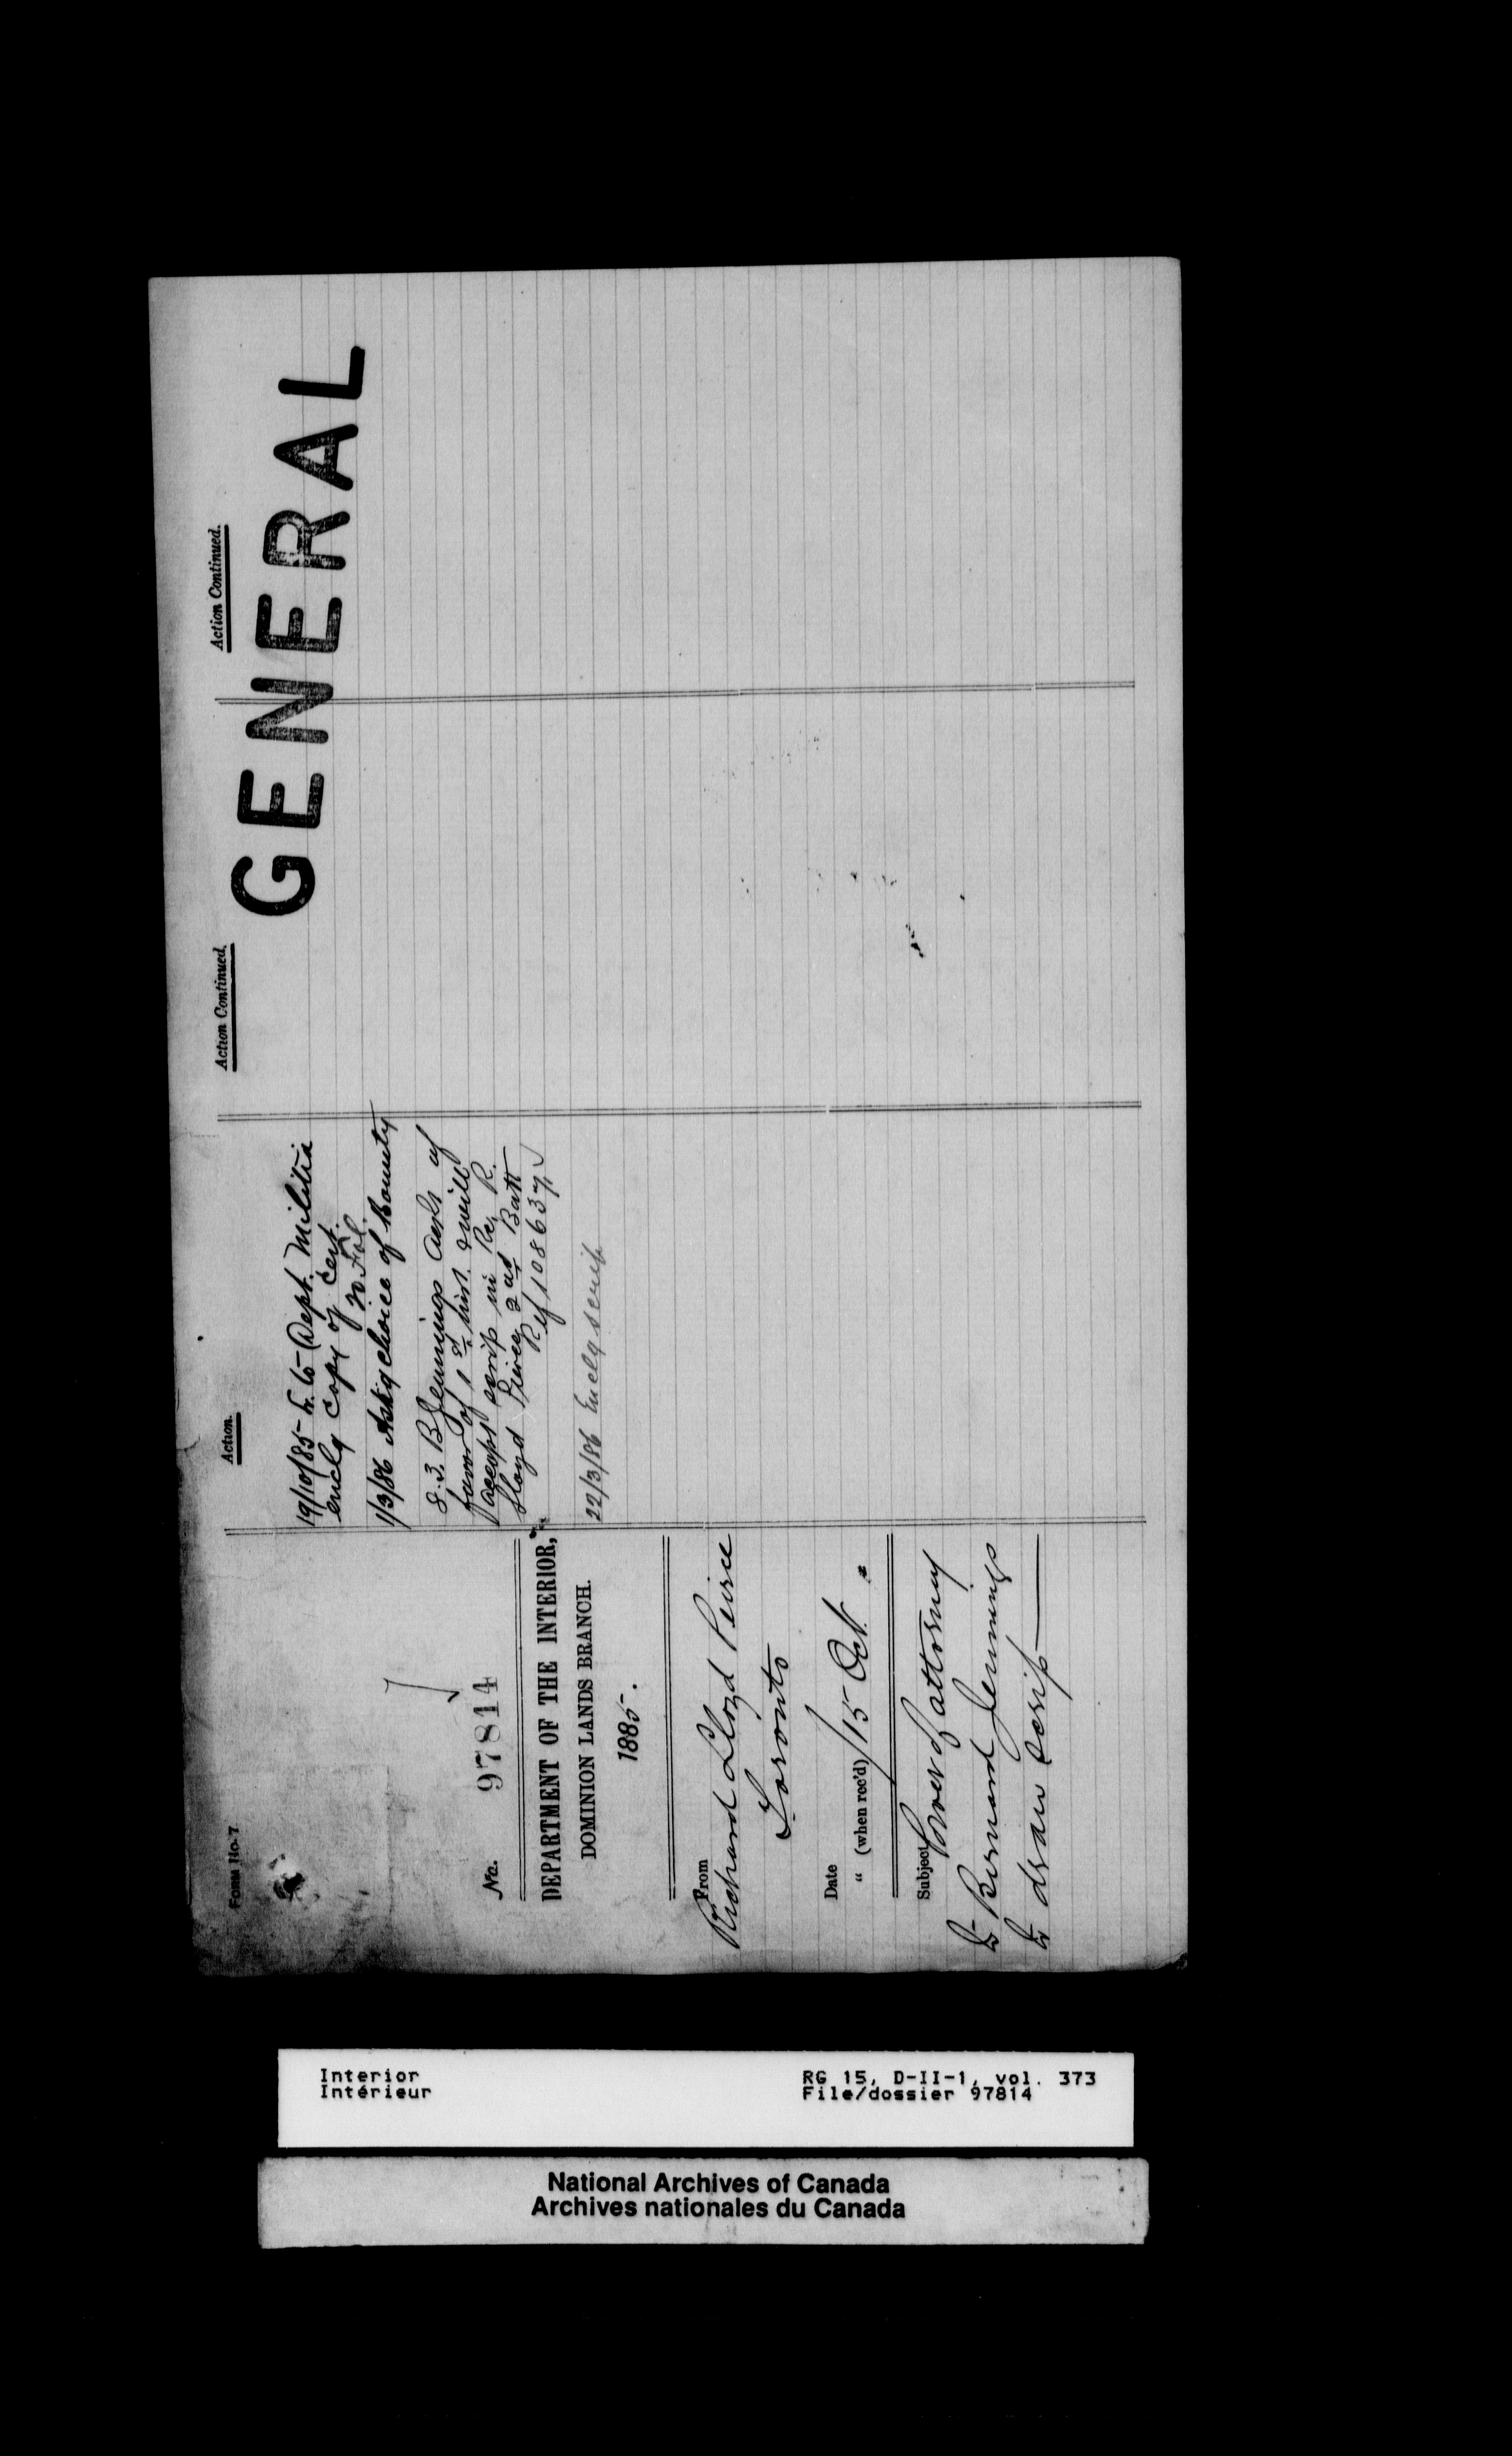 Form No. 7
No. 97814
DEPARTMENT OF THE INTERIOR,
DOMINION LANDS BRANCH.
1885.
From
Richard Lloyd Peirce
Toronto
Date
" (when rec'd) 15 Oct.
Subject Power of attorney
to Bernard Jennings
to draw scrip
Action.
19/10/85 - L. to Dept. Militia
enclg copy of cert.
1/3/86 Askg choice of Bounty
8.3. B Jennings acks of
favor of 1st inst. & will
accept scrip in Re, R.
Lloyd Pierce 2nd Batt
Ref 108637 ✓
22/3/86 Enclg scrip
Action Continued.
Action Continued.
GENERAL
Interior
Intérieur
RG 15, D-II-1, vol. 373
File/dossier 97814
National Archives of Canada
Archives nationales du Canada